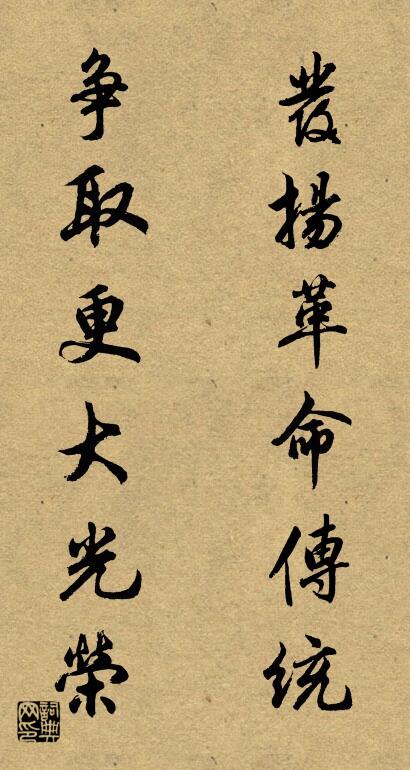 發揚革命傳統
争取更大光榮
詞典网印